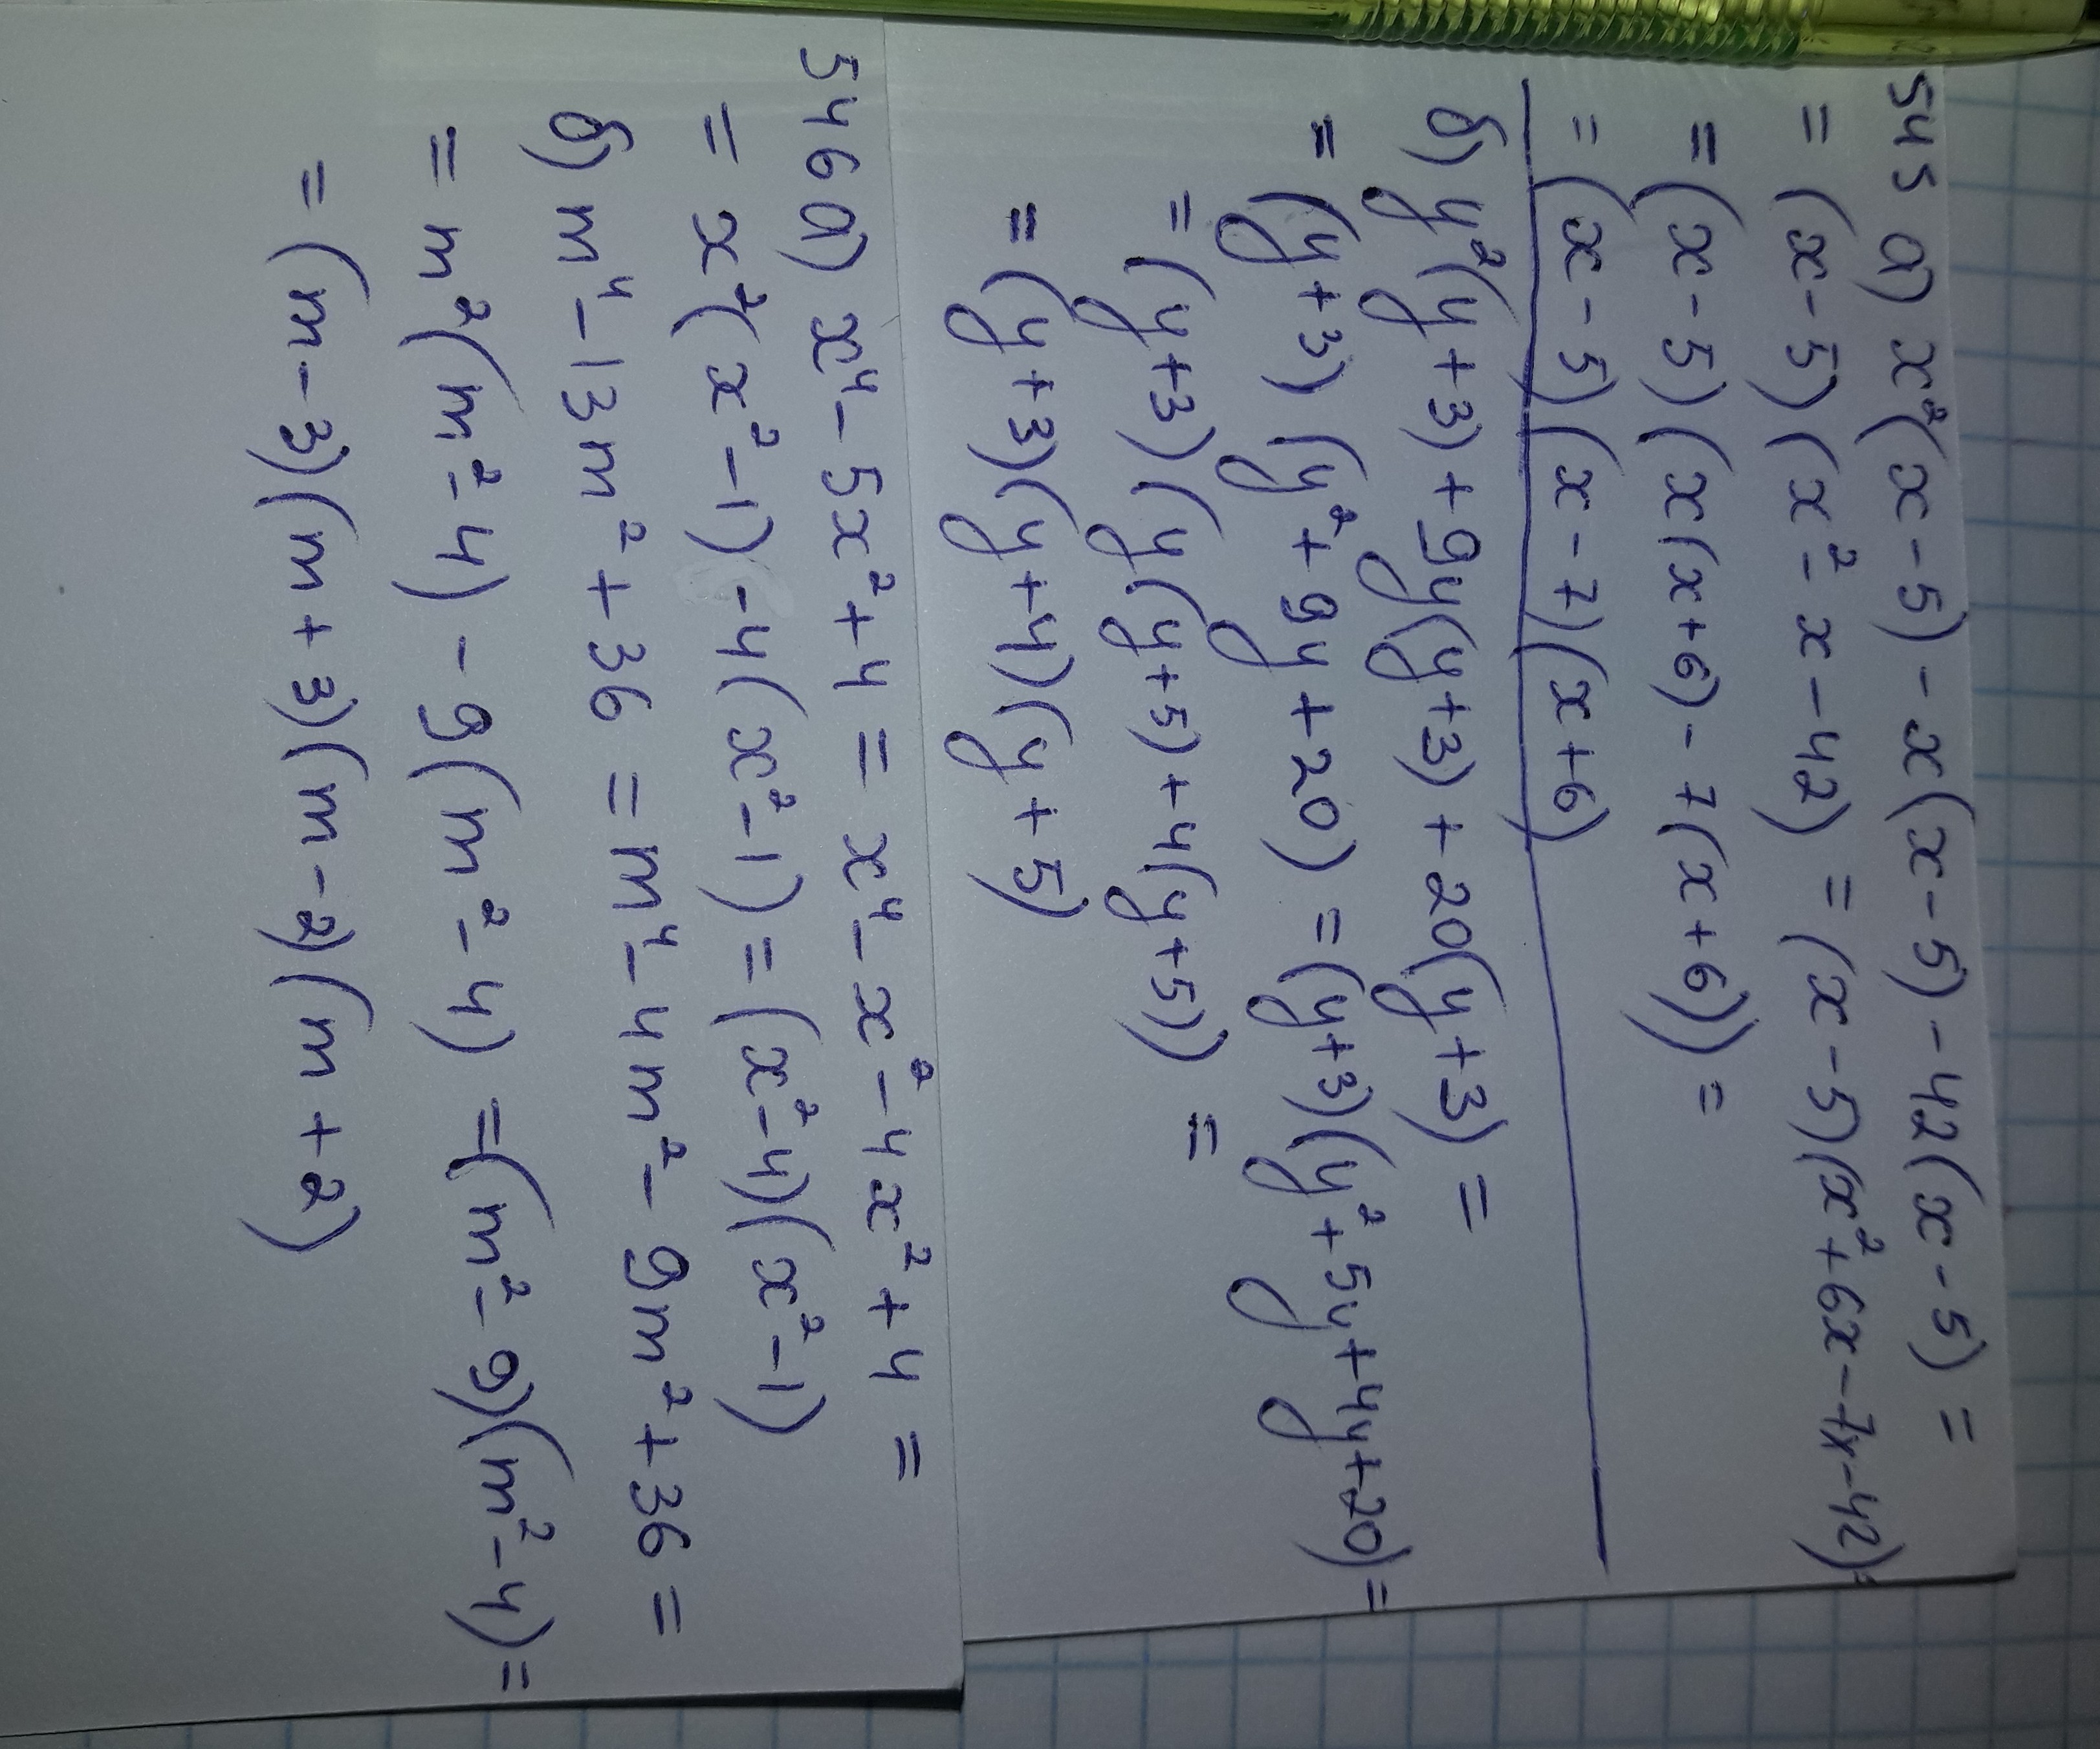 545 а) x²(x-5)-x(x-5)-42(x-5)=
=(x-5)(x²-x-42)=(x-5)(x²+6x-7x-42)=
=(x-5)(x(x+6)-7(x+6))=
=(x-5)(x-7)(x+6)
б) y²(y+3)+9y(y+3)+20(y+3)=
=(y+3)(y²+9y+20)=(y+3)(y²+5y+4y+20)=
=(y+3)(y(y+5)+4(y+5))=
=(y+3)(y+4)(y+5)
546 а) x⁴-5x²+4=x⁴-x²-4x²+4=
=x²(x²-1)-4(x²-1)=(x²-4)(x²-1)
б) m⁴-13m²+36=m⁴-4m²-9m²+36=
=m²(m²-4)-9(m²-4)=(m²-9)(m²-4)=
=(m-3)(m+3)(m-2)(m+2)